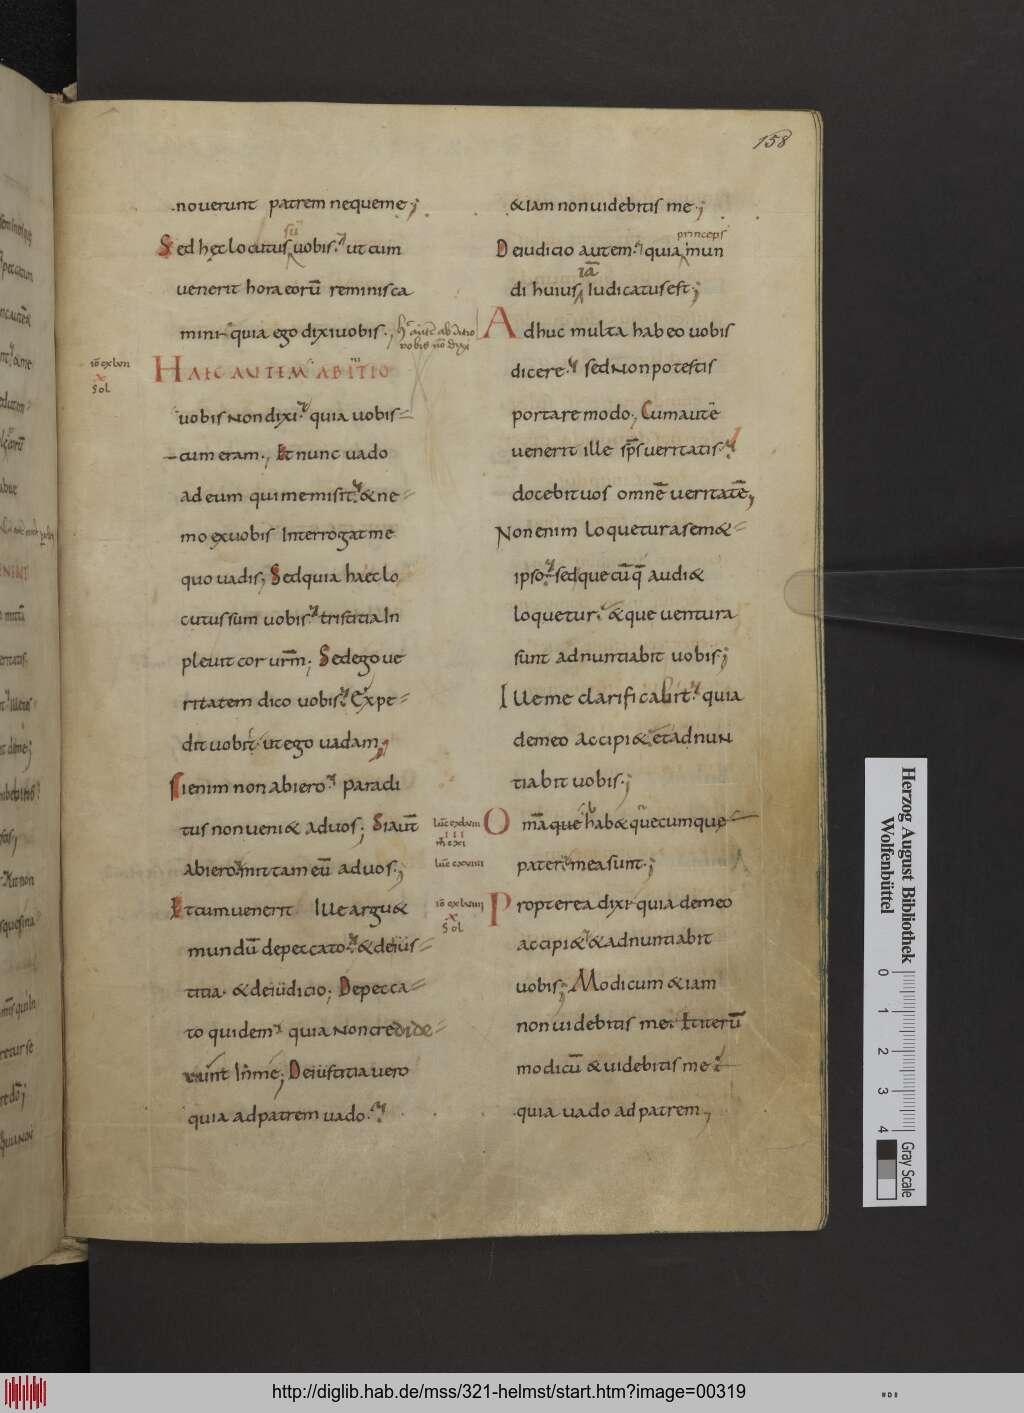 158
noverunt patrem neque me;
Sed hęc locutus sū vobis. ut cum
venerit hora eorū reminisca
mini quia ego dixi vobis;
HAEC AUTEM AB ITIO
vobis non dixi. quia vobis
cum eram; Et nunc vado
ad eum qui me misit. & ne
mo ex vobis Interrogat me
quo vadis; Sed quia haec lo
cutus sum vobis. tristitia In
plevit cor urm; Sed ego ve
ritatem dico vobis. Expe
dit vobis ut ego vadam;
Si enim non abiero. Paracli
tus non veni& ad vos; Si aut
abiero mittam eū ad vos;
Et cum venerit Ille argu&
mundū de peccato. & de ius
titia. & de iudicio; De pecca
to quidem quia non credide
runt In me; De iustitia vero
quia ad patrem vado.
& iam non videbitis me;
princeps
De iudicio autem. quia mun
iā
di huius Iudicatus est;
Adhuc multa habeo vobis
dicere. sed Non potestis
portare modo; Cum autē
venerit ille sps veritatis.
docebit vos omnē veritatē;
Non enim loquetur a sem&
ipso. sed quecūq; audi&
loquetur. & que ventura
sunt adnuntiabit vobis;
Ille me clarificabit. quia
de meo accipi& et adnun
tiabit vobis;
Omā que hab& quecumque
pater mea sunt;
Propterea dixi quia de meo
accipi& & adnuntiabit
vobis; Modicum & iam
non videbitis me. Et iterū
modicū & videbitis me
quia vado ad patrem;
Herzog August Bibliothek
Wolfenbüttel
0 1 2 3 4
Gray Scale
http://diglib.hab.de/mss/321-helmst/start.htm?image=00319